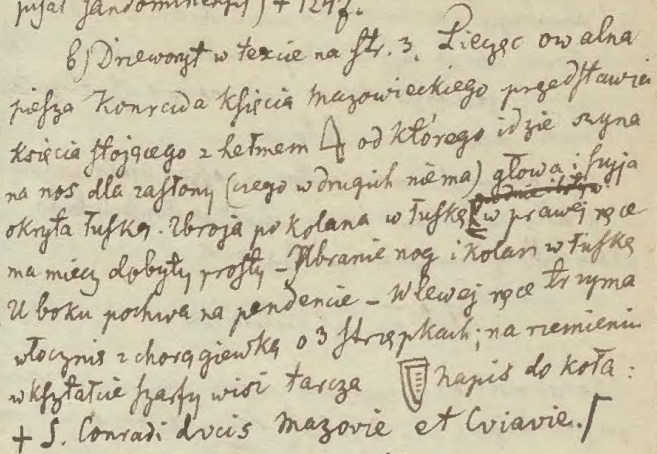 pisał Sandomirensis) + 1247.
b) Drzeworyt w texcie na str. 3. Pieczęć owalna
piesza Konrada Księcia Mazowieckiego przedstawia
Księcia stojącego z hełmem od którego idzie szyna
na nos dla zasłony (czego w drugich niema) głowa i szyja
okryta łuską. Zbroja po kolana w łuskę w prawej ręce
ma miecz dobyty prosty – Ubranie nog i kolan w łuskę
U boku pochwa na pendencie – W lewej ręce trzyma
włocznię z chorągiewką o 3 strzępkach; na rzemieniu
w kształcie szarfy wisi tarcza napis do koła:
+ S. Conradi dvcis Mazovie et Cviavie.